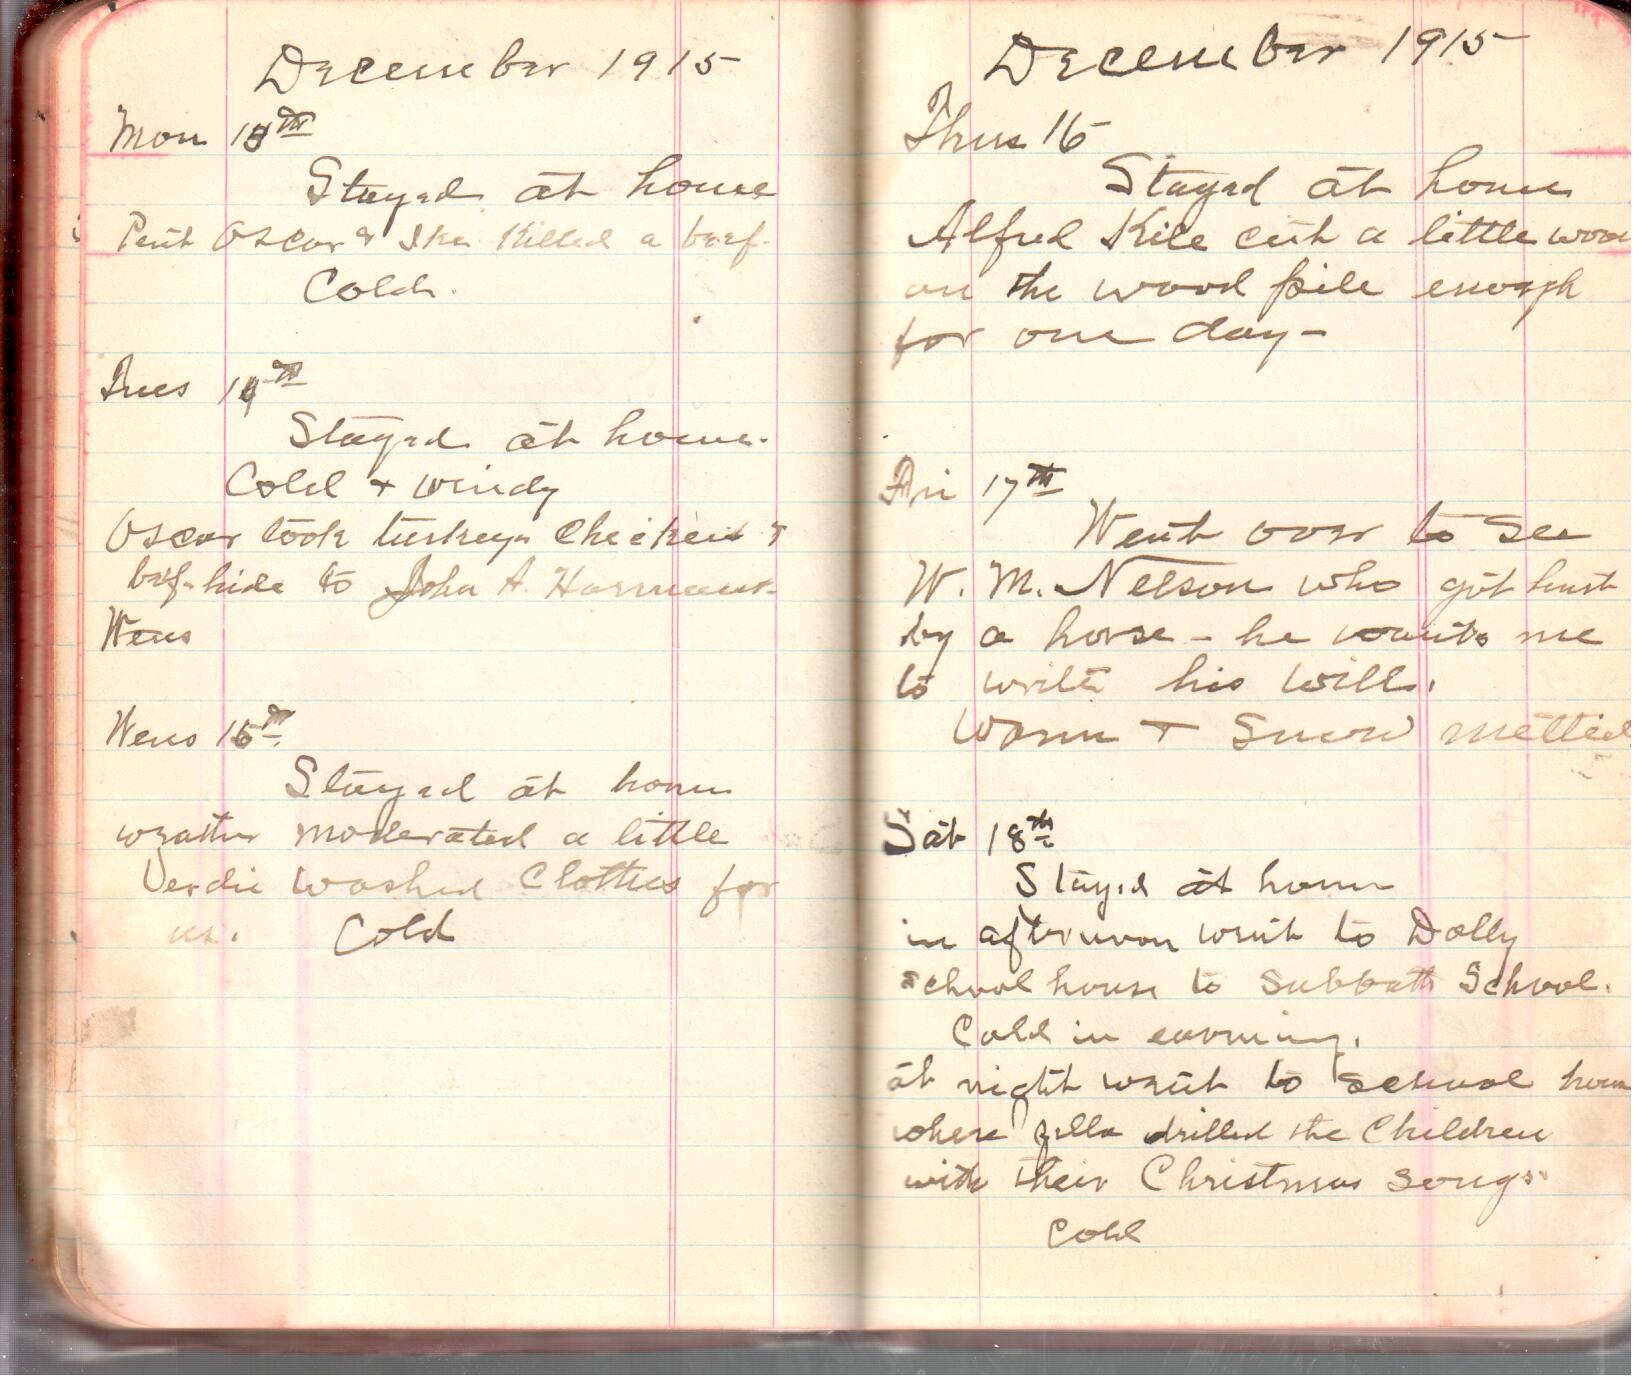 December 1915
Mon 13th
Stayed at home
Oscar & Ike Killed a beef.
Cold.
Tues 14th
Stayed at home.
Cold + windy
Oscar took turkeys Chickens &
beef-hide to John A. Harman
Wens
Wens 15th
Stayed at home
weather moderated a little
Verdie washed Clothes for
us. Cold
December 1915
Thurs 16
Stayed at home
Alfred Kile cut a little wood
on the wood pile enough
for one day -
Fri 17th
Went over to see
W. M. Nelson who got hurt
by a horse - he wants me
to write his will.
Warm + Snow melted
Sat 18th
Stayed at home
in afternoon went to Dolly
school house to Sabbath School.
Cold in evening.
at night went to school house
where Zella drilled the Children
with their Christmas songs
Cold